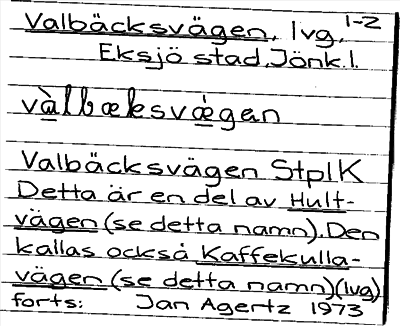 1-2
Valbäcksvägen, lvg,
Eksjö stad, Jönk.l.
vàlbæksvæ̀gan
Valbäcksvägen StplK
Detta är en del av Hult-
vägen (se detta namn). Den
kallas också Kaffekulla-
vägen (se detta namn)(lvg)
forts: Jan Agertz 1973